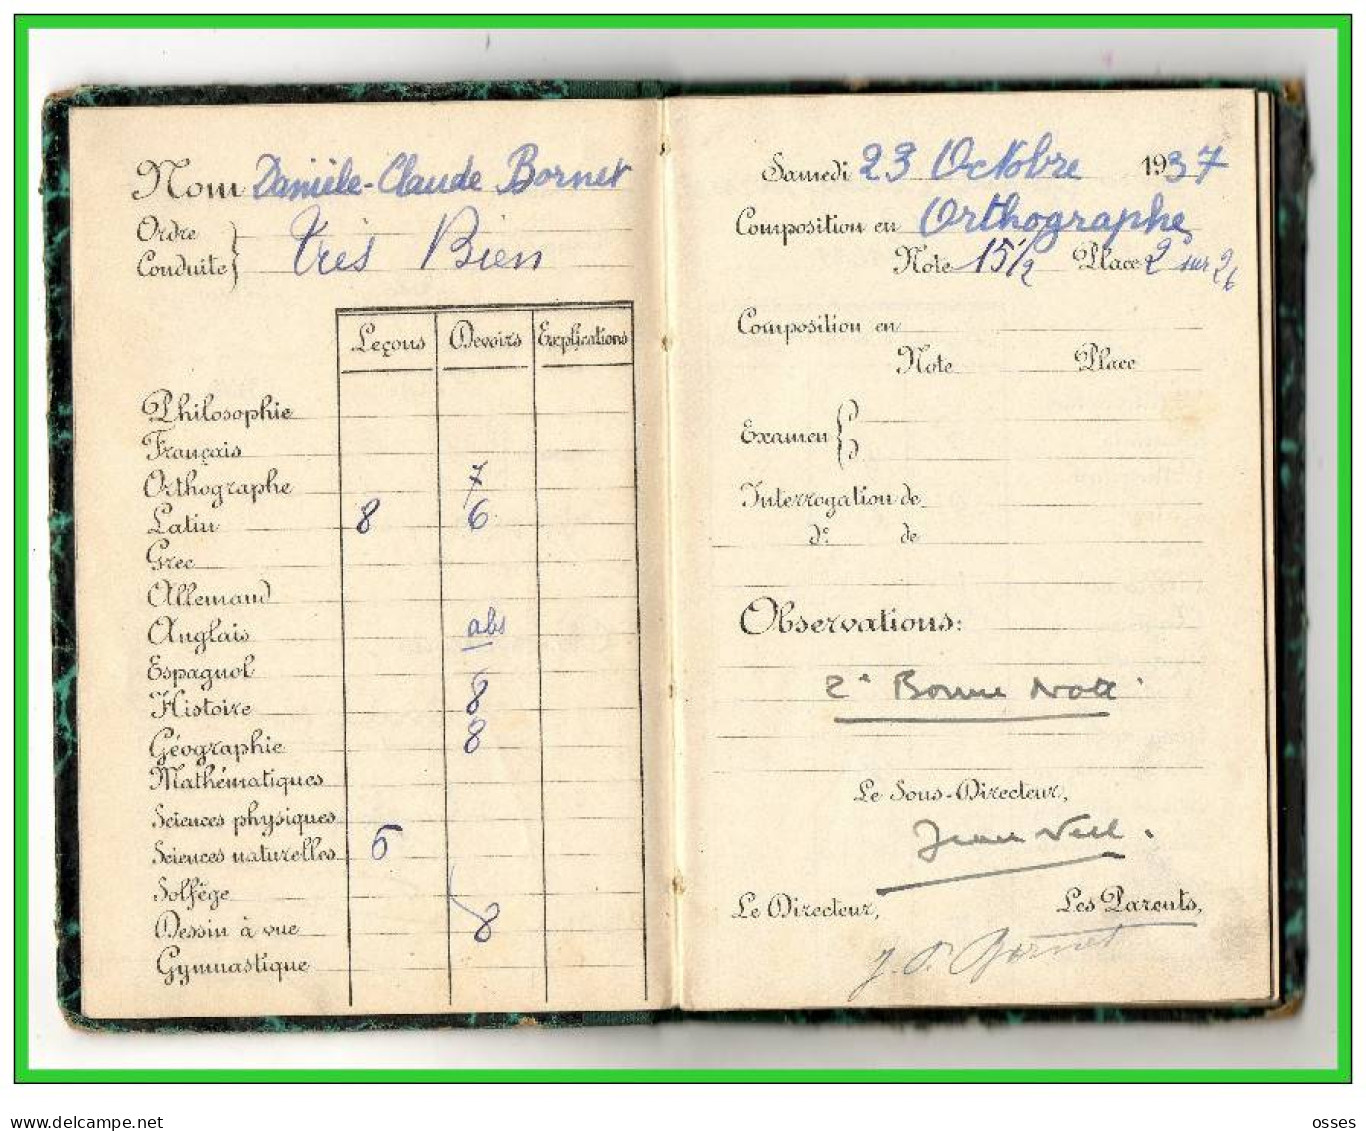 Nom Danièle-Claude Bornet
Ordre
Conduite
Très Bien
Leçons Devoirs Explications
Philosophie
Français
Orthographe 7
Latin 8 6
Grec
Allemand
Anglais abs
Espagnol
Histoire 8
Géographie 8
Mathématiques
Sciences physiques
Sciences naturelles 5
Solfège
Dessin à vue 8
Gymnastique
Samedi 23 Octobre 1937
Composition en Orthographe
Note 15 1/2 Place 2 sur 26
Composition en
Note Place
Examen
Interrogation de
d° de
Observations:
2e Bonne Note.
Le Sous-Directeur,
Jean
Le Directeur, Les Parents,
J. P. Bornet
www.delcampe.net
osses